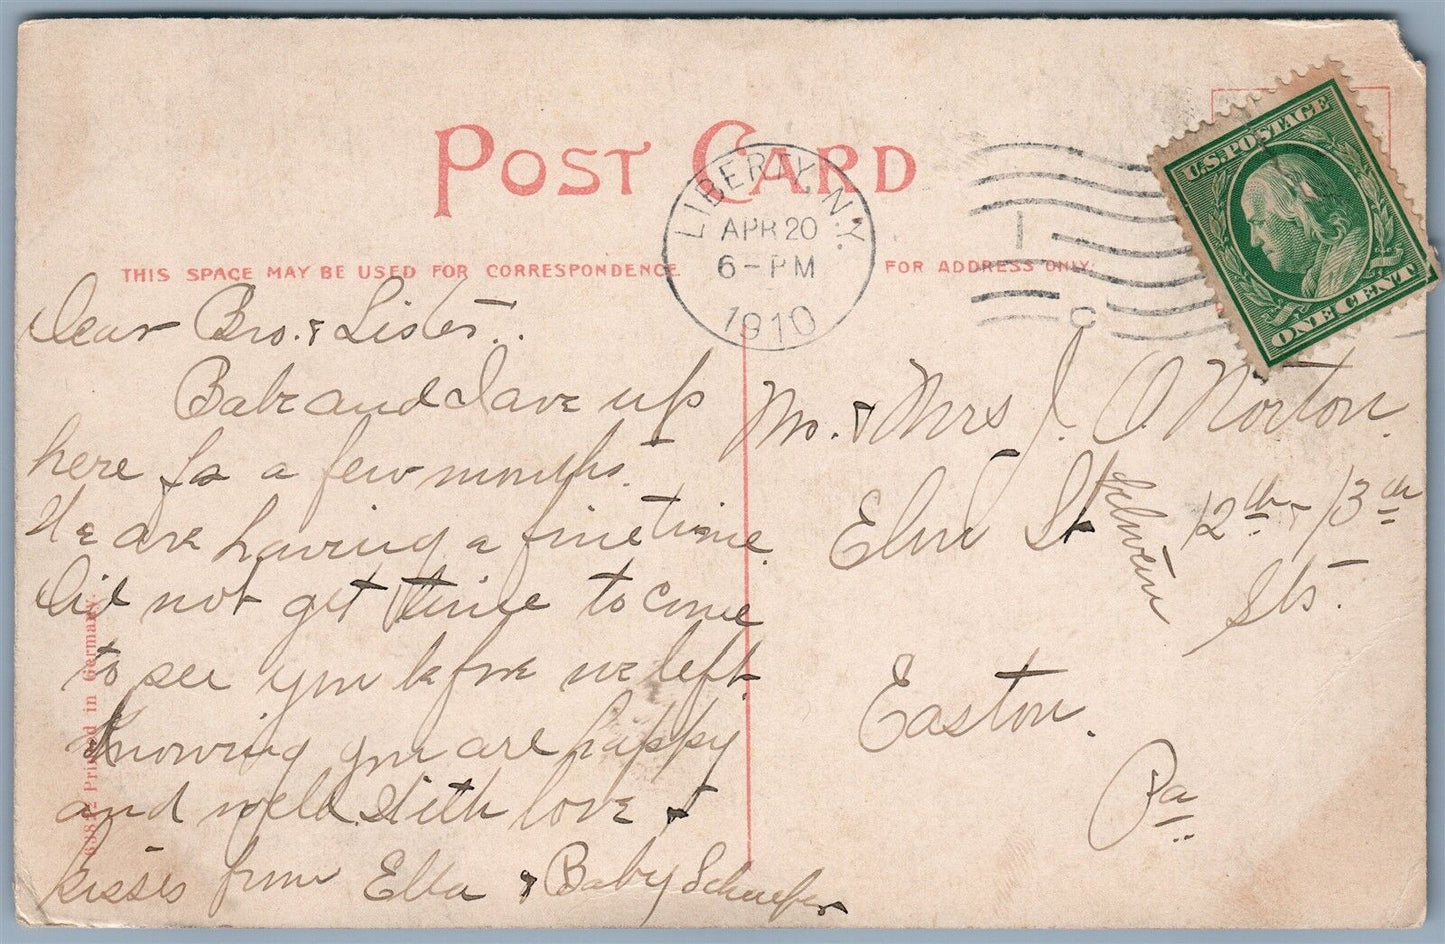 POST CARD
LIBERTY, N.Y.
APR 20
6-PM
1910
U.S. POSTAGE
ONE CENT
THIS SPACE MAY BE USED FOR CORRESPONDENCE
FOR ADDRESS ONLY.
Dear Bro. & Sister.
Babe and I are up
here for a few months.
We are having a fine time.
Did not get time to come
to see you before we left.
Knowing you are happy
and well. With love &
kisses from Ella & Baby Schaefer
Mr. & Mrs J. O. Norton.
Elm St between 12th & 13th
Sts.
Easton.
Pa
Printed in Germany.